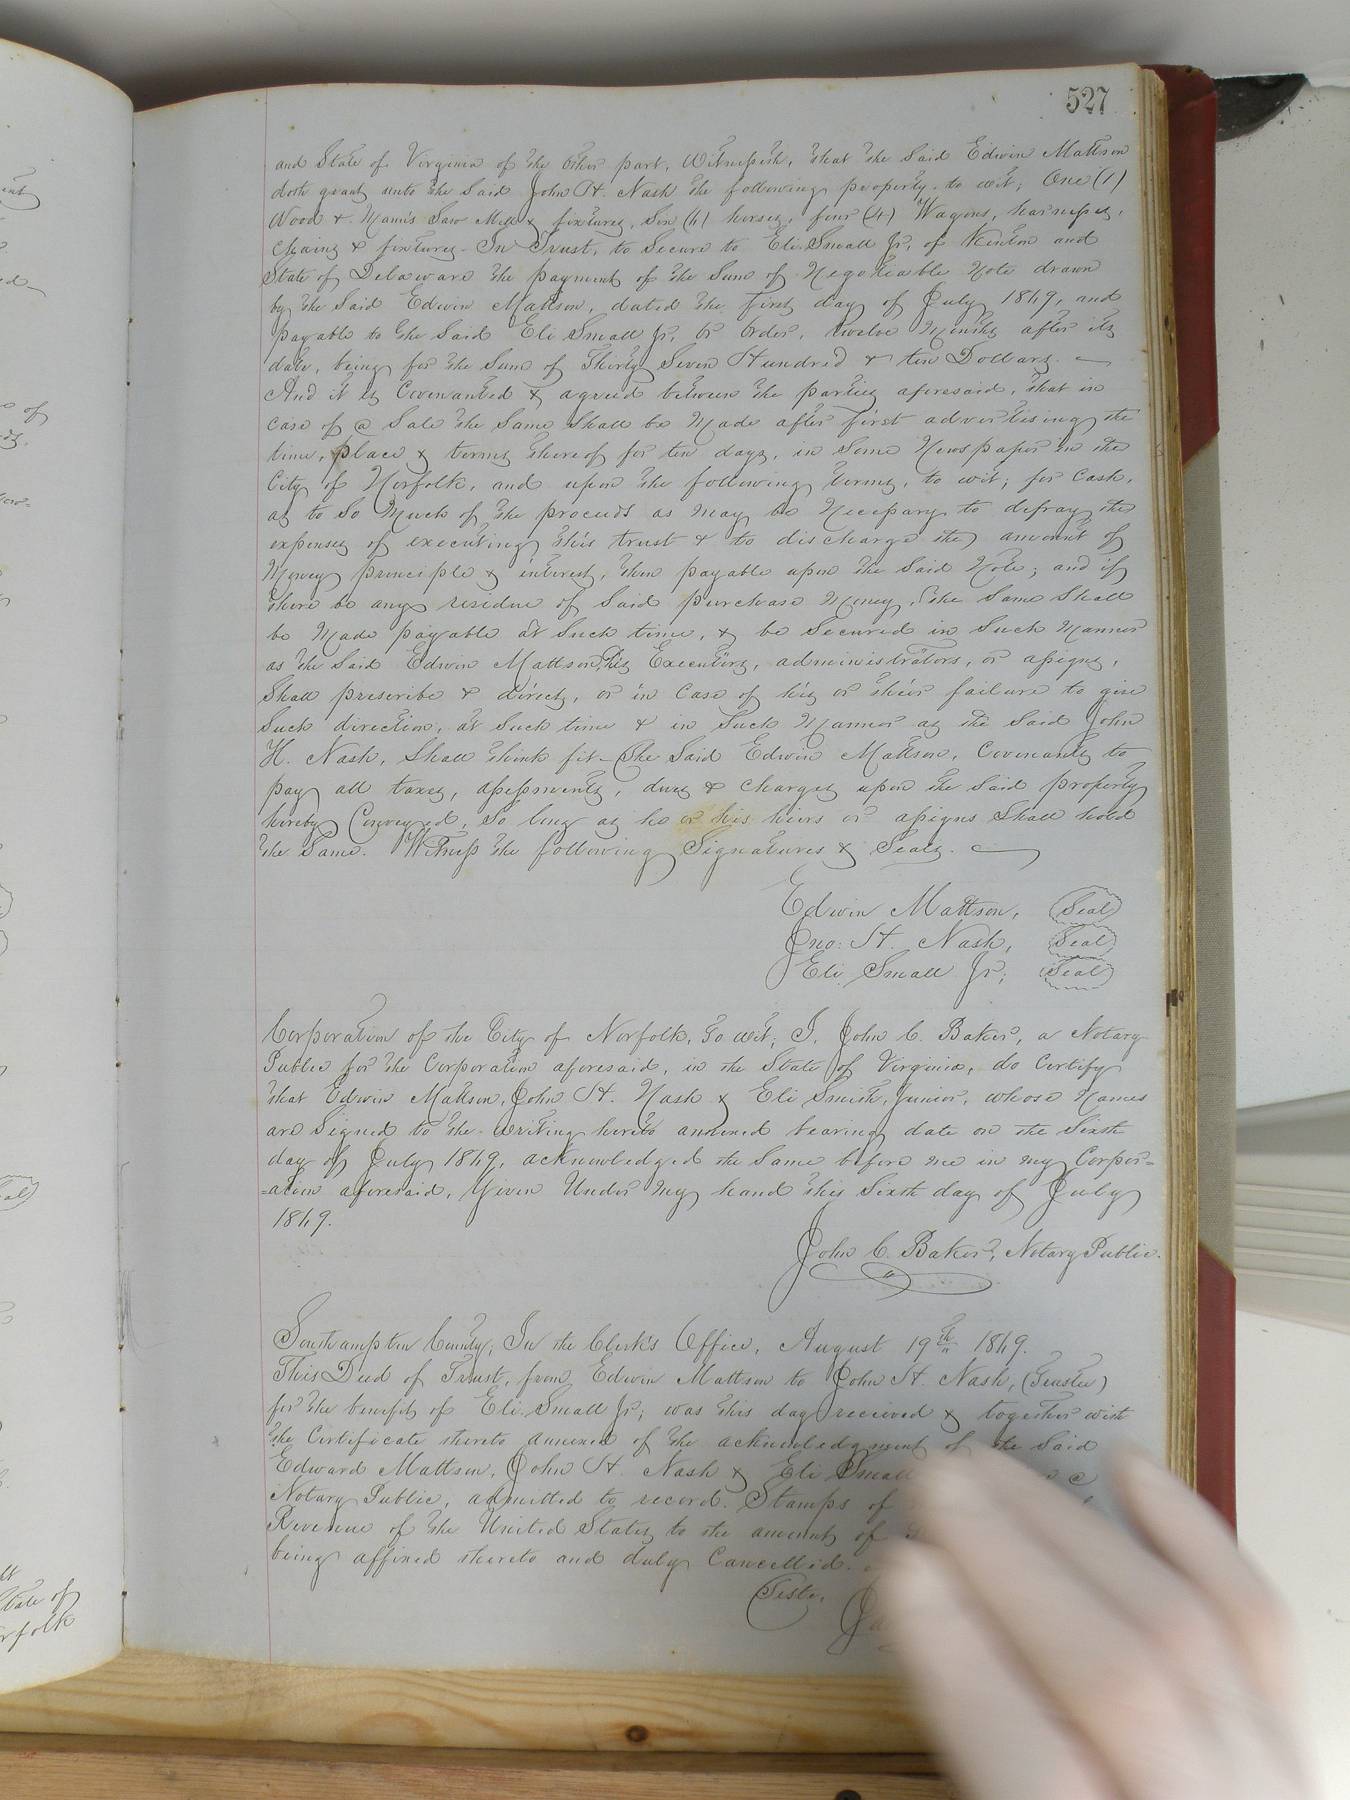 527
and State of Virginia of the other part, Witnesseth, that the said Edwin Mattson
doth grant unto the said John H. Nash the following property, to wit; One (1)
Wood & Mann's Saw Mill & fixtures, Six (6) horses, four (4) Wagons, harnesses,
Chains & fixtures. In Trust, to secure to Eli Small Jr, of Kenton and
State of Delaware the payment of the Sum of Negotiable Note drawn
by the said Edwin Mattson, dated the first day of July 1869, and
payable to the said Eli Small Jr, or order, twelve Months after its
date, being for the Sum of Thirty Seven Hundred & ten Dollars.
And it is Covenanted & agreed between the parties aforesaid, that in
case of a Sale the Same Shall be Made after first advertising the
time, place & terms thereof for ten days, in Some Newspaper in the
City of Norfolk, and upon the following terms, to wit; for Cash,
as to So Much of the proceeds as may be Necessary to defray the
expenses of executing this trust & to discharge the amount of
Money principle & interest, then payable upon the Said Note; and if
there be any residue of Said purchase Money, the Same Shall
be Made payable at Such time, & be Secured in Such Manner
as the Said Edwin Mattson, his Executors, administrators, or assigns,
Shall prescribe & direct, or in Case of his or their failure to give
Such direction, at Such time & in Such Manner as the Said John
H. Nash, Shall think fit - The Said Edwin Mattson, Covenants to
pay all taxes, assessments, dues & charges upon the Said property
hereby Conveyed, So long as he or his heirs or assigns Shall hold
the Same. Witness the following Signatures & Seals.
Edwin Mattson, Seal
Jno: H. Nash, Seal
Eli Small Jr; Seal
Corporation of the City of Norfolk, To wit; I, John C. Baker, a Notary
Public for the Corporation aforesaid, in the State of Virginia, do Certify
that Edwin Mattson, John H. Nash & Eli Smith, Junior, whose Names
are Signed to the writing hereto annexed bearing date on the Sixth
day of July 1869, acknowledged the Same before me in my Corpor=
=ation aforesaid, Given Under my hand this Sixth day of July
1869.
John C. Baker, Notary Public.
Southampton County, In the Clerk's Office, August 19th 1869.
This Deed of Trust, from Edwin Mattson to John H. Nash, (Trustee)
for the benefit of Eli Small Jr; was this day received & together with
the Certificate thereto annexed of the acknowledgment of the Said
Edward Mattson, John H. Nash & Eli Small
Notary Public, admitted to record. Stamps of
Revenue of the United States to the amount of
being affixed thereto and duly Cancelled.
Teste,